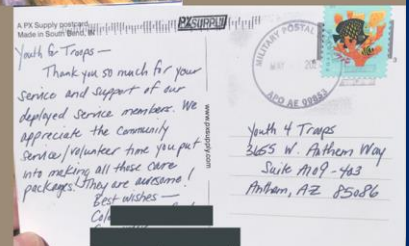 A PX Supply postcard
Made in South Bend, IN
PX SUPPLY
Youth 4 Troops —
Thank you so much for your
service and support of our
deployed service members. We
appreciate the community
service/volunteer time you put
into making all those care
packages. They are awesome!
Best wishes —
www.pxsupply.com
MILITARY POSTAL
MAY
APO AE
Youth 4 Troops
3655 W. Anthem Way
Suite A109-403
Anthem, AZ 85086